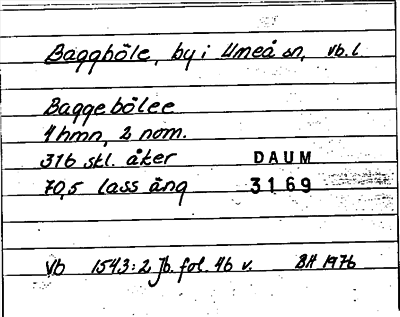 Baggböle, by i Umeå sn, vb. l
Baggebölee
4 hmn, 2 nom.
316 skl. åker DAUM
70,5 lass äng 3169
Vb 1543:2 Jb. fol. 46 v. BH 1976